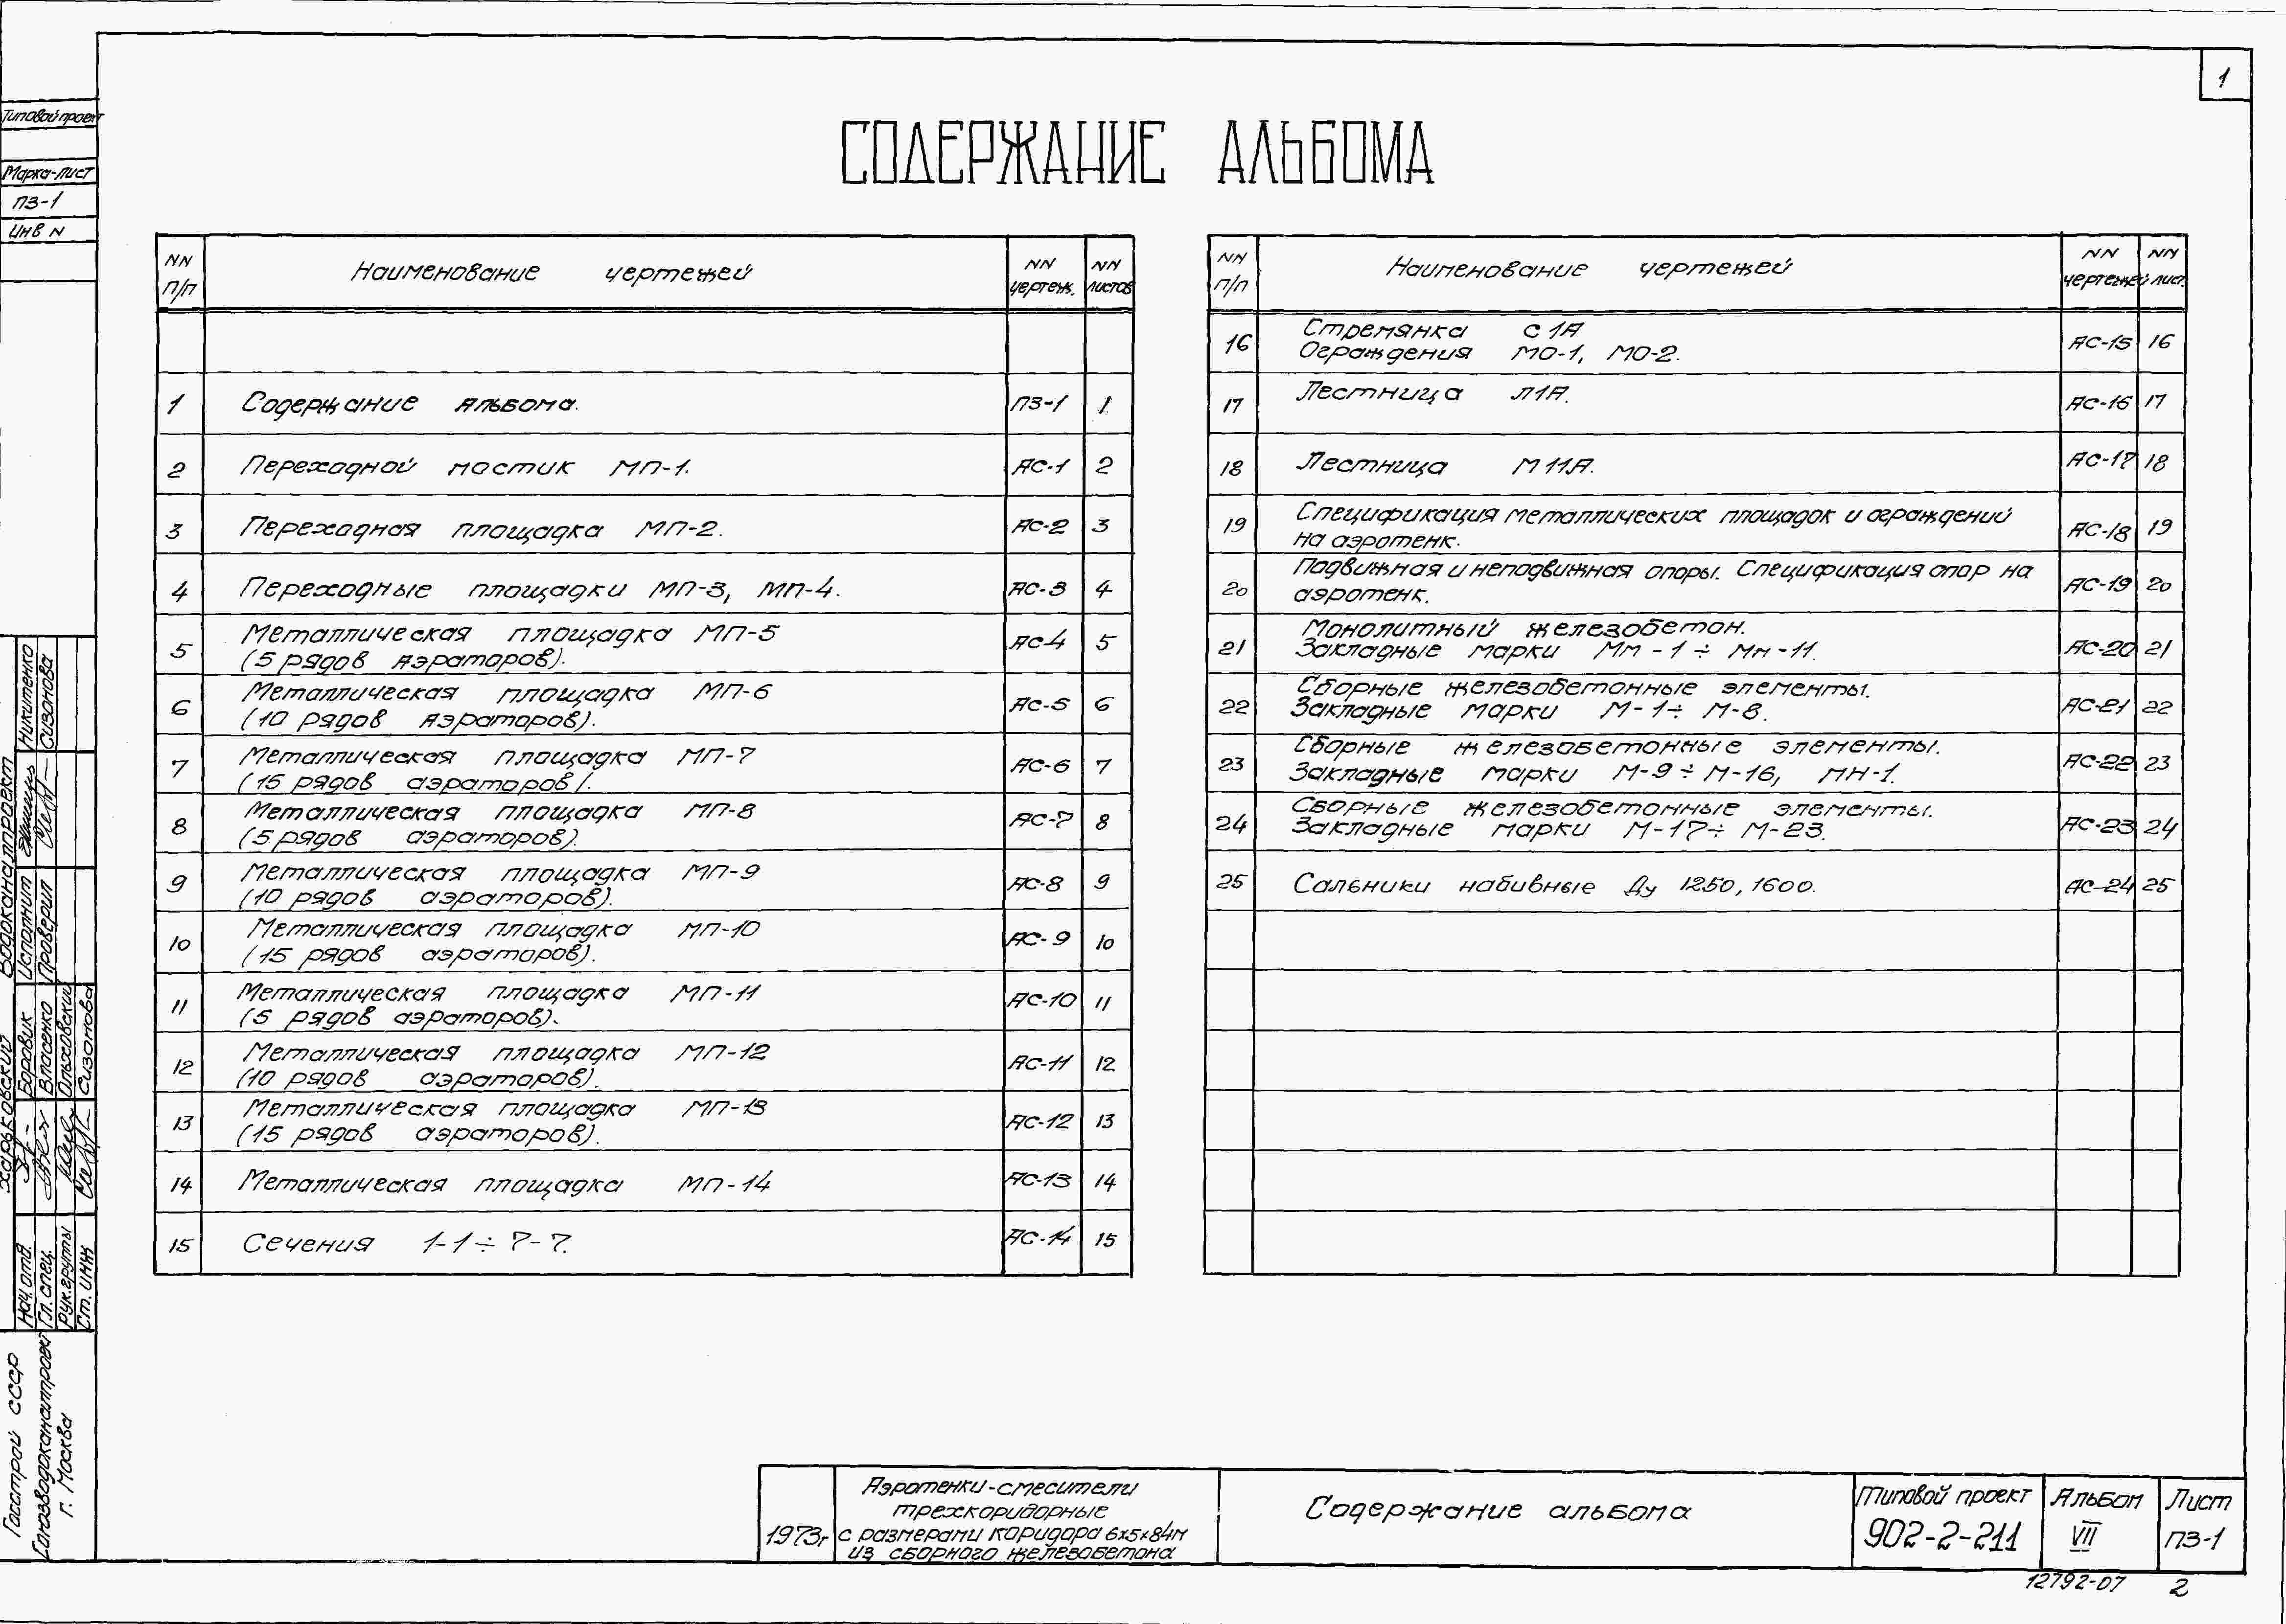 1
Типовой проект
Марка-лист
ПЗ-1
Инв N
СОДЕРЖАНИЕ АЛЬБОМА
NN п/п Наименование чертежей NN чертеж. NN листов
1 Содержание альбома. ПЗ-1 1
2 Переходной мостик МП-1. АС-1 2
3 Переходная площадка МП-2. АС-2 3
4 Переходные площадки МП-3, МП-4. АС-3 4
5 Металлическая площадка МП-5 АС-4 5
(5 рядов аэраторов).
6 Металлическая площадка МП-6 АС-5 6
(10 рядов аэраторов).
7 Металлическая площадка МП-7 АС-6 7
(15 рядов аэраторов).
8 Металлическая площадка МП-8 АС-7 8
(5 рядов аэраторов).
9 Металлическая площадка МП-9 АС-8 9
(10 рядов аэраторов).
10 Металлическая площадка МП-10 АС-9 10
(15 рядов аэраторов).
11 Металлическая площадка МП-11 АС-10 11
(5 рядов аэраторов).
12 Металлическая площадка МП-12 АС-11 12
(10 рядов аэраторов).
13 Металлическая площадка МП-13 АС-12 13
(15 рядов аэраторов).
14 Металлическая площадка МП-14 АС-13 14
15 Сечения 1-1÷7-7. АС-14 15
NN п/п Наименование чертежей NN чертежей NN лист.
16 Стремянка С1А АС-15 16
Ограждения МО-1, МО-2.
17 Лестница Л1А. АС-16 17
18 Лестница М11А. АС-17 18
19 Спецификация металлических площадок и ограждений АС-18 19
на аэротенк.
20 Подвижная и неподвижная опоры. Спецификация опор на АС-19 20
аэротенк.
21 Монолитный железобетон. АС-20 21
Закладные марки Мм-1÷Мм-11.
22 Сборные железобетонные элементы. АС-21 22
Закладные марки М-1÷М-8.
23 Сборные железобетонные элементы. АС-22 23
Закладные марки М-9÷М-16, МН-1.
24 Сборные железобетонные элементы. АС-23 24
Закладные марки М-17÷М-23.
25 Сальники набивные Ду 1250, 1600. АС-24 25
Госстрой СССР
Союзводоканалпроект
г. Москва
Харьковский Водоканалпроект
Нач. отд. Боровик Исполнит Никитенко
Гл. спец. Власенко Проверил Сизонова
Рук. группы Ольховский
Ст. инж Сизонова
1973г
Аэротенки-смесители
трехкоридорные
с размерами коридора 6х5х84м
из сборного железобетона
Содержание альбома
Типовой проект
902-2-211
Альбом
VII
Лист
ПЗ-1
12792-07 2